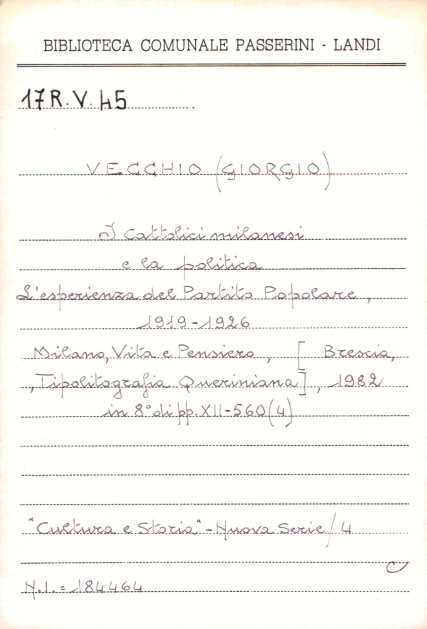 BIBLIOTECA COMUNALE PASSERINI - LANDI
17 R. V. 45
VECCHIO (GIORGIO)
I Cattolici milanesi
e la politica
L'esperienza del Partito Popolare,
1919-1926
Milano, Vita e Pensiero, [Brescia,
, Tipolitografia Queriniana], 1982
in 8° di pp. XII-560(4)
"Cultura e Storia" - Nuova Serie/4
C
N.I.= 184464